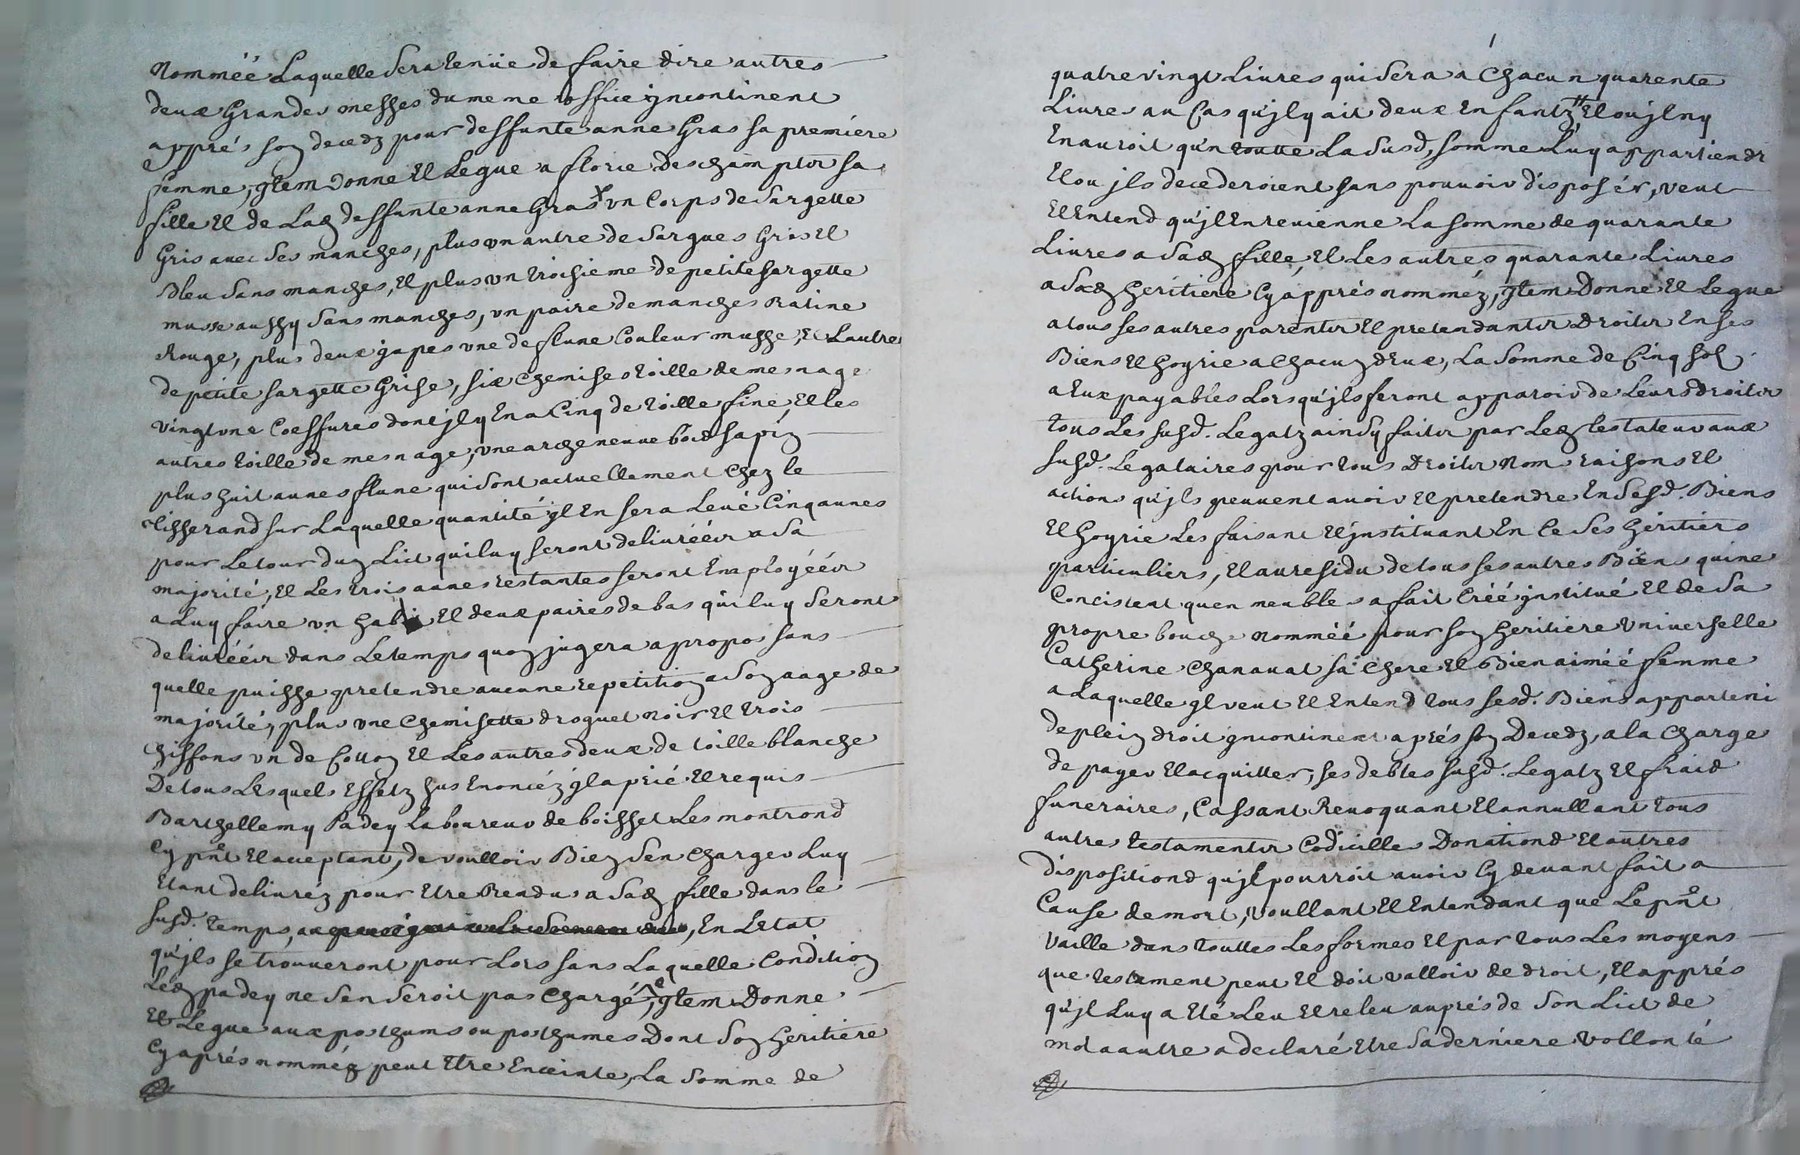 nommée Laquelle sera tenüe de faire dire autres
deux Grandes messes du meme office jncontinent
apprés son decedz pour deffunte anne Gras sa premiere
femme, jtem donne et Legue a florie Deschamptz sa
fille et de Lad deffunte anne Gras un Corps de Sargette
Gris avec ses manches, plus un autre de Sargues Gris et
bleu sans manches, et plus un troisieme de petite sargette
musse aussy sans manches, un paire de manches Ratine
Rouge, plus deux japes une de flune Couleur musse, et Lautre
de petite sargette Grise, six chemises toille de mesnage
vingt une Coeffures dont jl y En a Cinq de toille fine, et les
autres toille de mesnage, une arche neuve bois sapin
plus huit aunes flune qui sont actuellement chez le
tisserand sur Laquelle quantité jl En sera Levé Cinq aunes
pour Le tour du Lict qui luy seront delivréér a sa
majorité, et Les trois aunes restantes seront Employéér
a Luy faire un habit et deux paires de bas qui luy seront
delivréér dans Le temps quon jugera a propos sans
quelle puisse pretendre aucune repetition a son aage de
majorité, plus une chemisette droguet noir et trois
chiffons un de Cotton et Les autres deux de toille blanche
De tous Lesquels Effetz sus Enoncéz jl a prié et requis
Barthellemy Padey Laboureur de boisset Les montrond
Cy pnt et acceptant, de voulloir Bien s'en charger Luy
Etant delivréz pour Etre Rendus a Sad fille dans le
susd. temps, En L'etat
qu'jls se trouveront pour Lors sans Laquelle Condition
Led padey ne sen seroit pas chargé, jtem Donne
Et Legue aux posthums ou posthumes Dont son heritiere
Cy aprés nomméz peut Etre Enceinte, La somme de
quatre vingt Livres qui sera a chacun quarente
Livres au Cas qu'jl y ait deux Enfantz Et ou jl ny
En auroit qu'n toutte La susd, somme Luy appartiendr
Et ou jls decederoient sans pouvoir disposér, veut
Et Entend qu'jl En revienne La somme de quarante
Livres a Sad fille, Et Les autres quarante Livres
a Sad heritiere Cy apprés nomméz, jtem Donne Et Legue
a tous ses autres parentz Et pretendantz Droitz En ses
Biens Et hoyrie a chacun d'Eux, La somme de Cinq sols
a Eux payables Lors qu'jls feront apparoir de Leurs droitz
tous Les susd. Legatz ainsy faitz par Led testateur aux
susd. Legataires pour tous Droitz nom raisons Et
actions qu'jls peuvent avoir Et pretendre En sesd. Biens
Et hoyrie Les faisant Et jnstituant En ce ses heritiers
particuliers, Et au residu de tous ses autres Biens qui ne
Concistent quen meubles a fait Créé jnstitué Et de sa
propre bouche nommée pour son heritiere Universelle
Catherine Chanavat sa chere Et Bien aimée femme
a Laquelle jl veut Et Entend tous sesd. Biens apparteni
de plein droit jncontinent aprés son Decedz, a la charge
de payer Et acquitter, ses debtes susd. Legatz Et fraid
funeraires, Cassant Revoquant Et annullant tous
autres testamentz Codicilles Donationd Et autres
dispositiond qu'jl pourroit avoir Cy devant fait a
Cause de mort, voullant Et Entendant que Le pnt
vaille dans touttes Les formes Et par tous Les moyens
que testament peut Et doit valloir de droit, Et apprés
qu'jl Luy a Eté Leu Et releu auprés de son Lict de
mot a autre a declaré Etre sa derniere vollonté